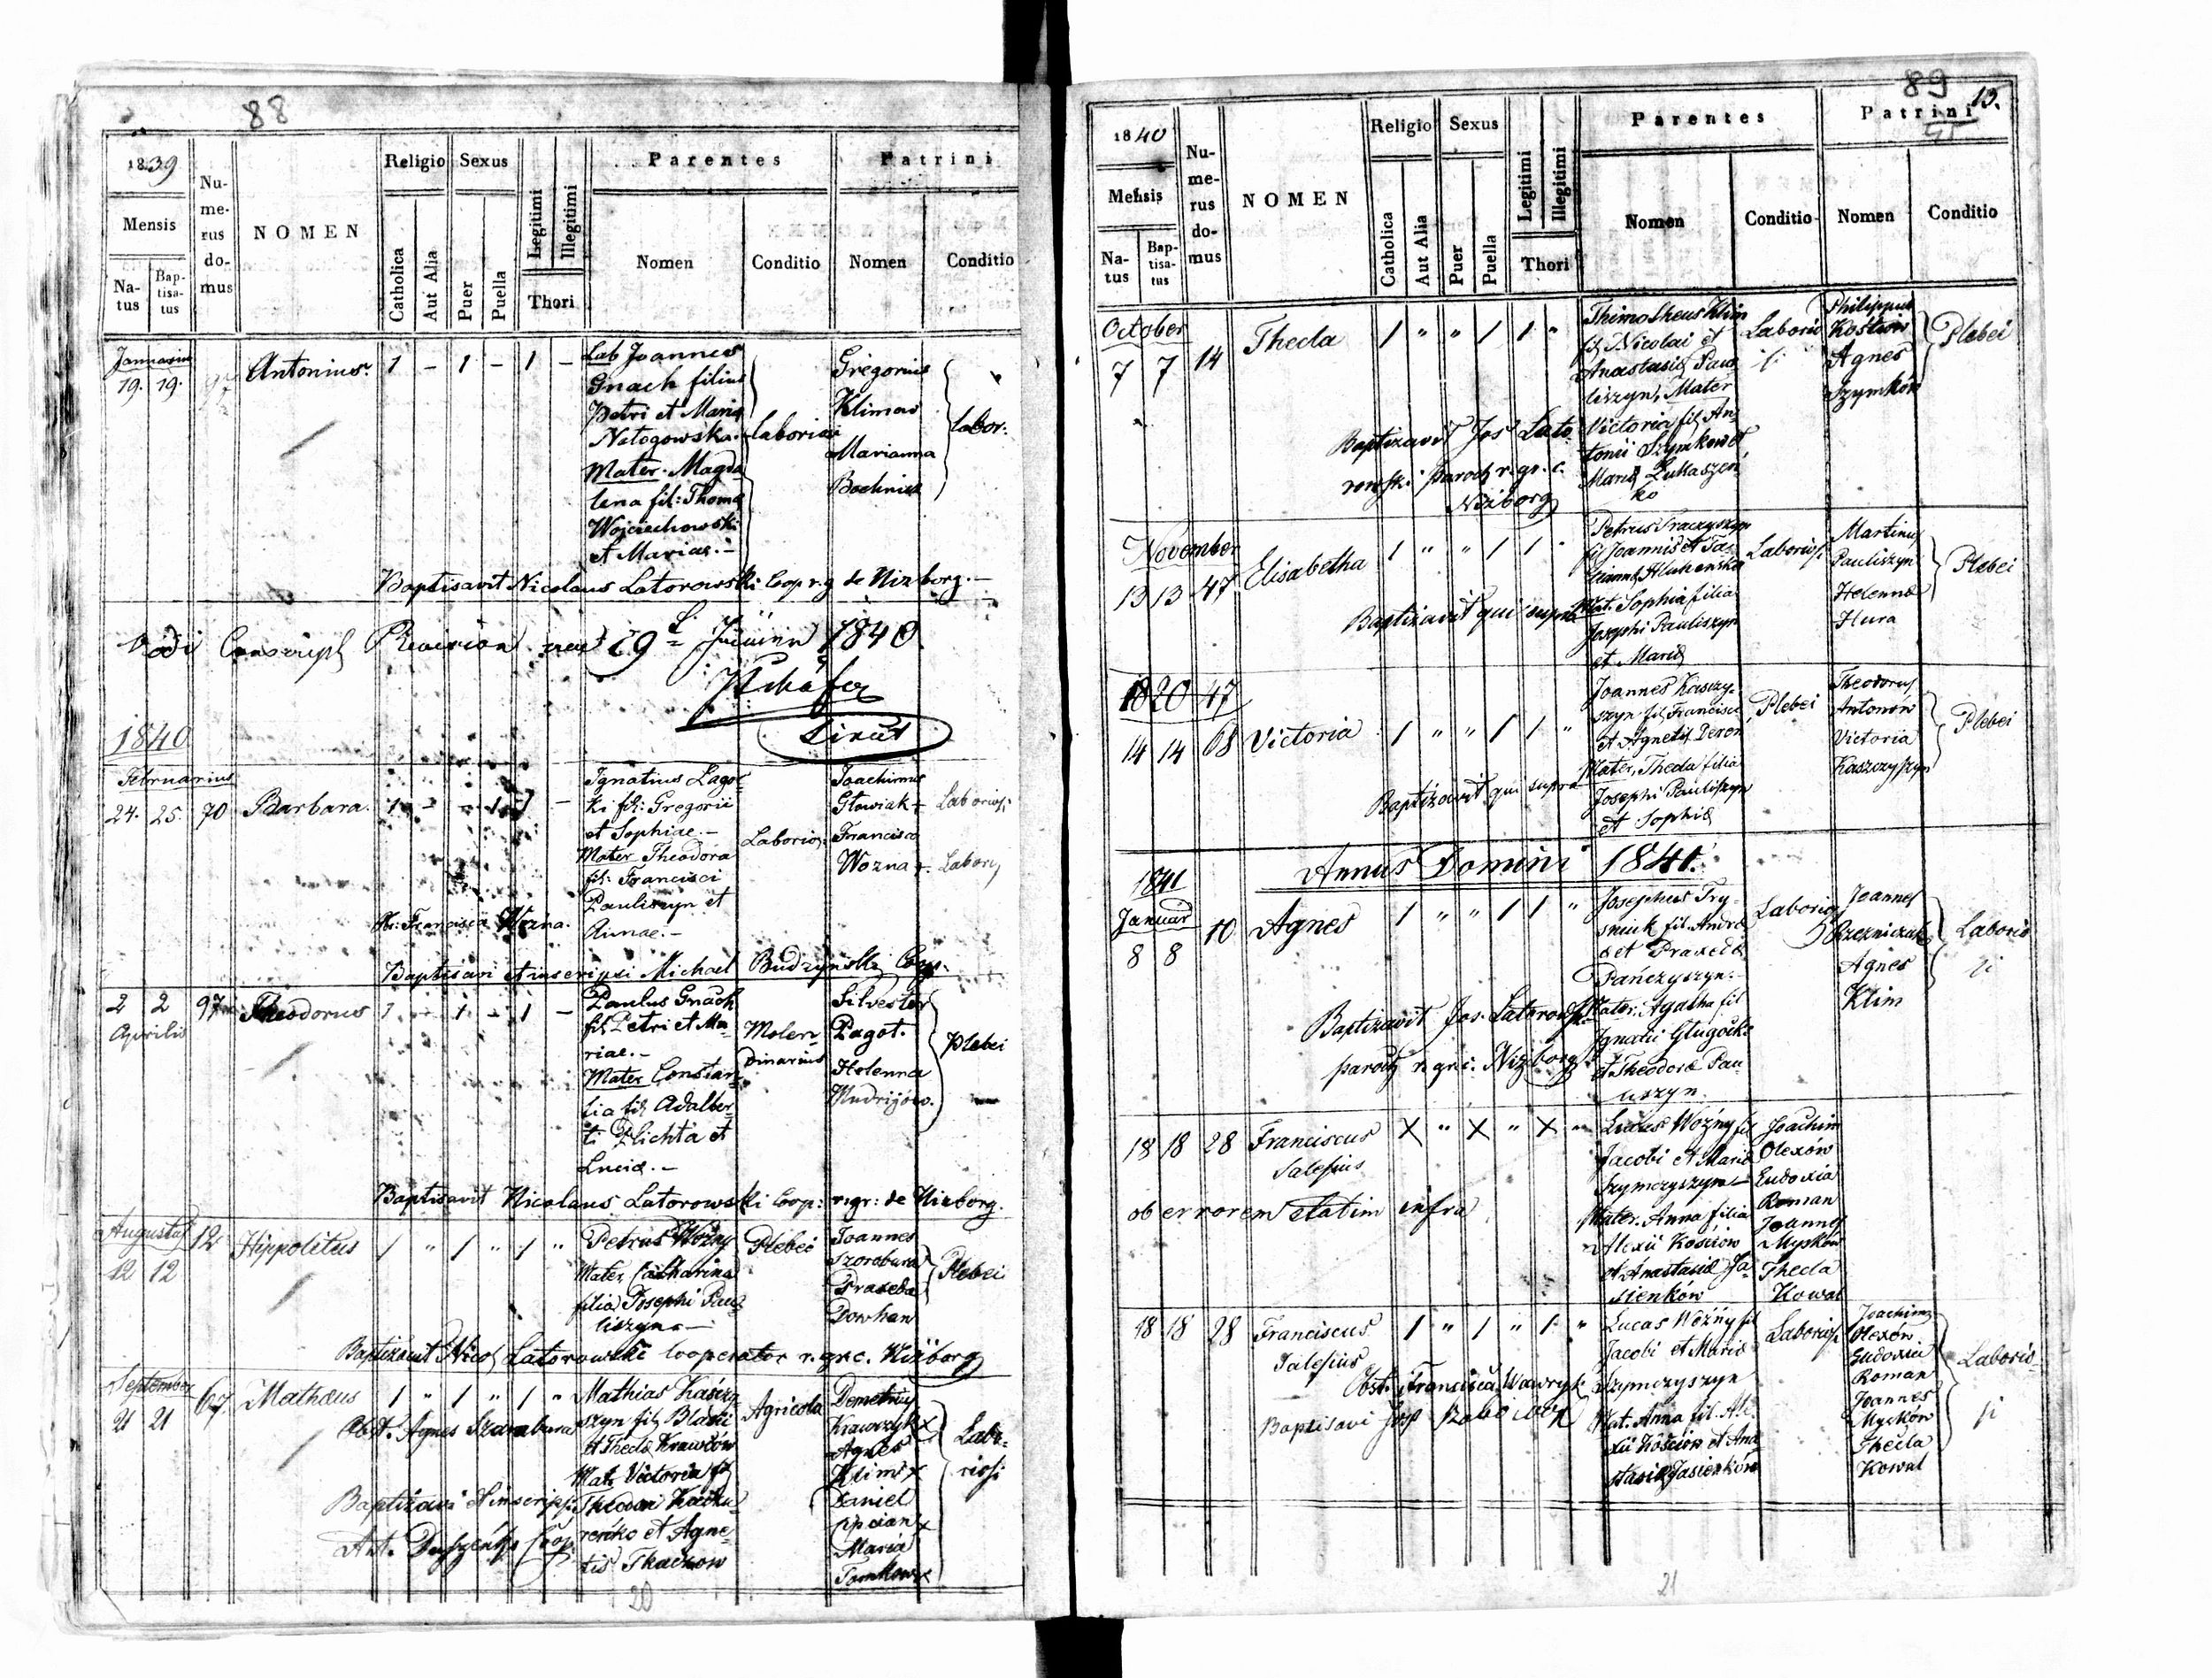 88
1839
Mensis
Na-
tus
Bap-
tisa-
tus
Nu-
me-
rus
do-
mus
NOMEN
Religio
Catholica
Aut Alia
Sexus
Puer
Puella
Legitimi
Illegitimi
Thori
Parentes
Nomen
Conditio
Patrini
Nomen
Conditio
Januarius
19. 19.
Antonius
1 - 1 - 1 -
Lab Joannes
Gnach filius
Petri et Maria
Natogowska.
Mater. Magda
lena fil: Thoma
Wojciechowski
et Mariae. -
laboriosi
Gregorius
Klimow
Marianna
Bochnick
labor.
Baptisavit Nicolaus Latorowski Coop r.g de Nizborg. -
Vidi
1840
1840
Februarius
24. 25. 70 Barbara. 1 - - 1 1 -
Ignatius Lagoc
ki fil: Gregorii
et Sophiae. -
Mater Theodora
fil: Francisci
Pauliszyn et
Annae. -
Laborios:
Joachimus
Głowiak +
Francisca
Wozna +
Laborios:
Labori
Obs: Francisca Wozna.
Baptisavi et inscripsi Michael Budzynski Coop.
2 2 97 Theodorus 1 - 1 - 1 -
Aprilis
Paulus Gnach
fil Petri et Ma
riae. -
Mater Constan
tia fil Adalber
ti Plichta et
Lucia. -
Molen
dinarius
Silvester
Pagot.
Helenna
Mudrijow.
Plebei
Baptisavit Nicolaus Latorowski Coop: r. gr: de Nizborg.
August
12 12 12 Hippolitus 1 " 1 " 1 "
Petrus Woźny
Mater Catharina
filia Josephi Pau
liszyn -
Plebei
Joannes
Szorobura
Praxeda
Dowhan
Plebei
Baptizavit Nicol Latorowski cooperator r. gr. c. Nizborg
September
21 21 67. Mathæus 1 " 1 " 1 "
Obst. Agnes Szarabura
Mathias Kaszcy
szyn fil Blasii
et Thecla Krawców
Mat. Victoria fil
Theodori Kaczu
renko et Agne
tis Tkaczow
Agricola
Demetry
Krawczyk x
Agnes
Klim x
Daniel
Cipcian x
Maria
Tomkow x
Labo-
riosi
Baptizavi et inscripsi
Ant. Coop.
20
89
13.
1840
Mensis
Na-
tus
Bap-
tisa-
tus
Nu-
me-
rus
do-
mus
NOMEN
Religio
Catholica
Aut Alia
Sexus
Puer
Puella
Legitimi
Illegitimi
Thori
Parentes
Nomen
Conditio
Patrini
Nomen
Conditio
October
7 7 14 Thecla 1 " " 1 1 "
Thimotheus Klim
fil Nicolai et
Anastasia Pau
liszyn, Mater
Victoria fil An-
tonii Szymkow et
Maria Lukaszen
ko
Laborio
si
Philippus
Kostiow
Agnes
Szymków
Plebei
Baptizavit Jos Lato
rowski paroch r. gr. c.
Nizborg
November
13 13 47. Elisabetha 1 " " 1 1 "
Petrus Traczyszyn
fil Joannis et Ta-
tianna Hluhenska
Mat. Sophia filia
Josephi Pauliszyn
et Maria
Laboriosi
Martinus
Pauliszyn
Helenna
Hura
Plebei
Baptizavit qui supra
18 20 47
14 14 68 Victoria 1 " " 1 1 "
Joannes Kaszczy-
szyn fil Francisci
et Agnetis Deren
Mater, Thecla filia
Josephi Pauliszyn
et Sophia
Plebei
Theodorus
Antonów
Victoria
Kaszczyszyn
Plebei
Baptizavit qui supra
Annus Domini 1841.
1841
Januar
8 8 10 Agnes 1 " " 1 1 "
Josephus Try-
sniuk fil. Andre
æ et Praxeda
Pańczyszyn.
Mater. Agatha fil
Ignatii Glugocki
et Theodora Pau
liszyn.
Laborios
Joannes
Rzezniczak
Agnes
Klim
Laborio
si
Baptizavit Jos. Latorowski
paroch r. gr. c. Nizborg
18 18 28 Franciscus X " X " X "
Salesius
ob errorem statim infra
Lucas Woźny fil
Jacobi et Maria
Szymczyszyn -
Mater. Anna filia
Alexii Kościów
et Anastasia Ja-
sienków
Joachim
Olexów
Eudoxia
Roman
Joannes
Myśków
Thecla
Kowal
18 18 28 Franciscus 1 " 1 " 1 "
Salesius
Obst. Francisca Wawryk
Baptisavi
Lucas Woźny fil
Jacobi et Maria
Szymczyszyn
Mat. Anna fil. Ale
xii Kościów et Ana
stasia Jasienków
Laboriosi
Joachim
Olexow
Eudoxia
Roman
Joannes
Myśków
Thecla
Kowal
Laborio
si
21